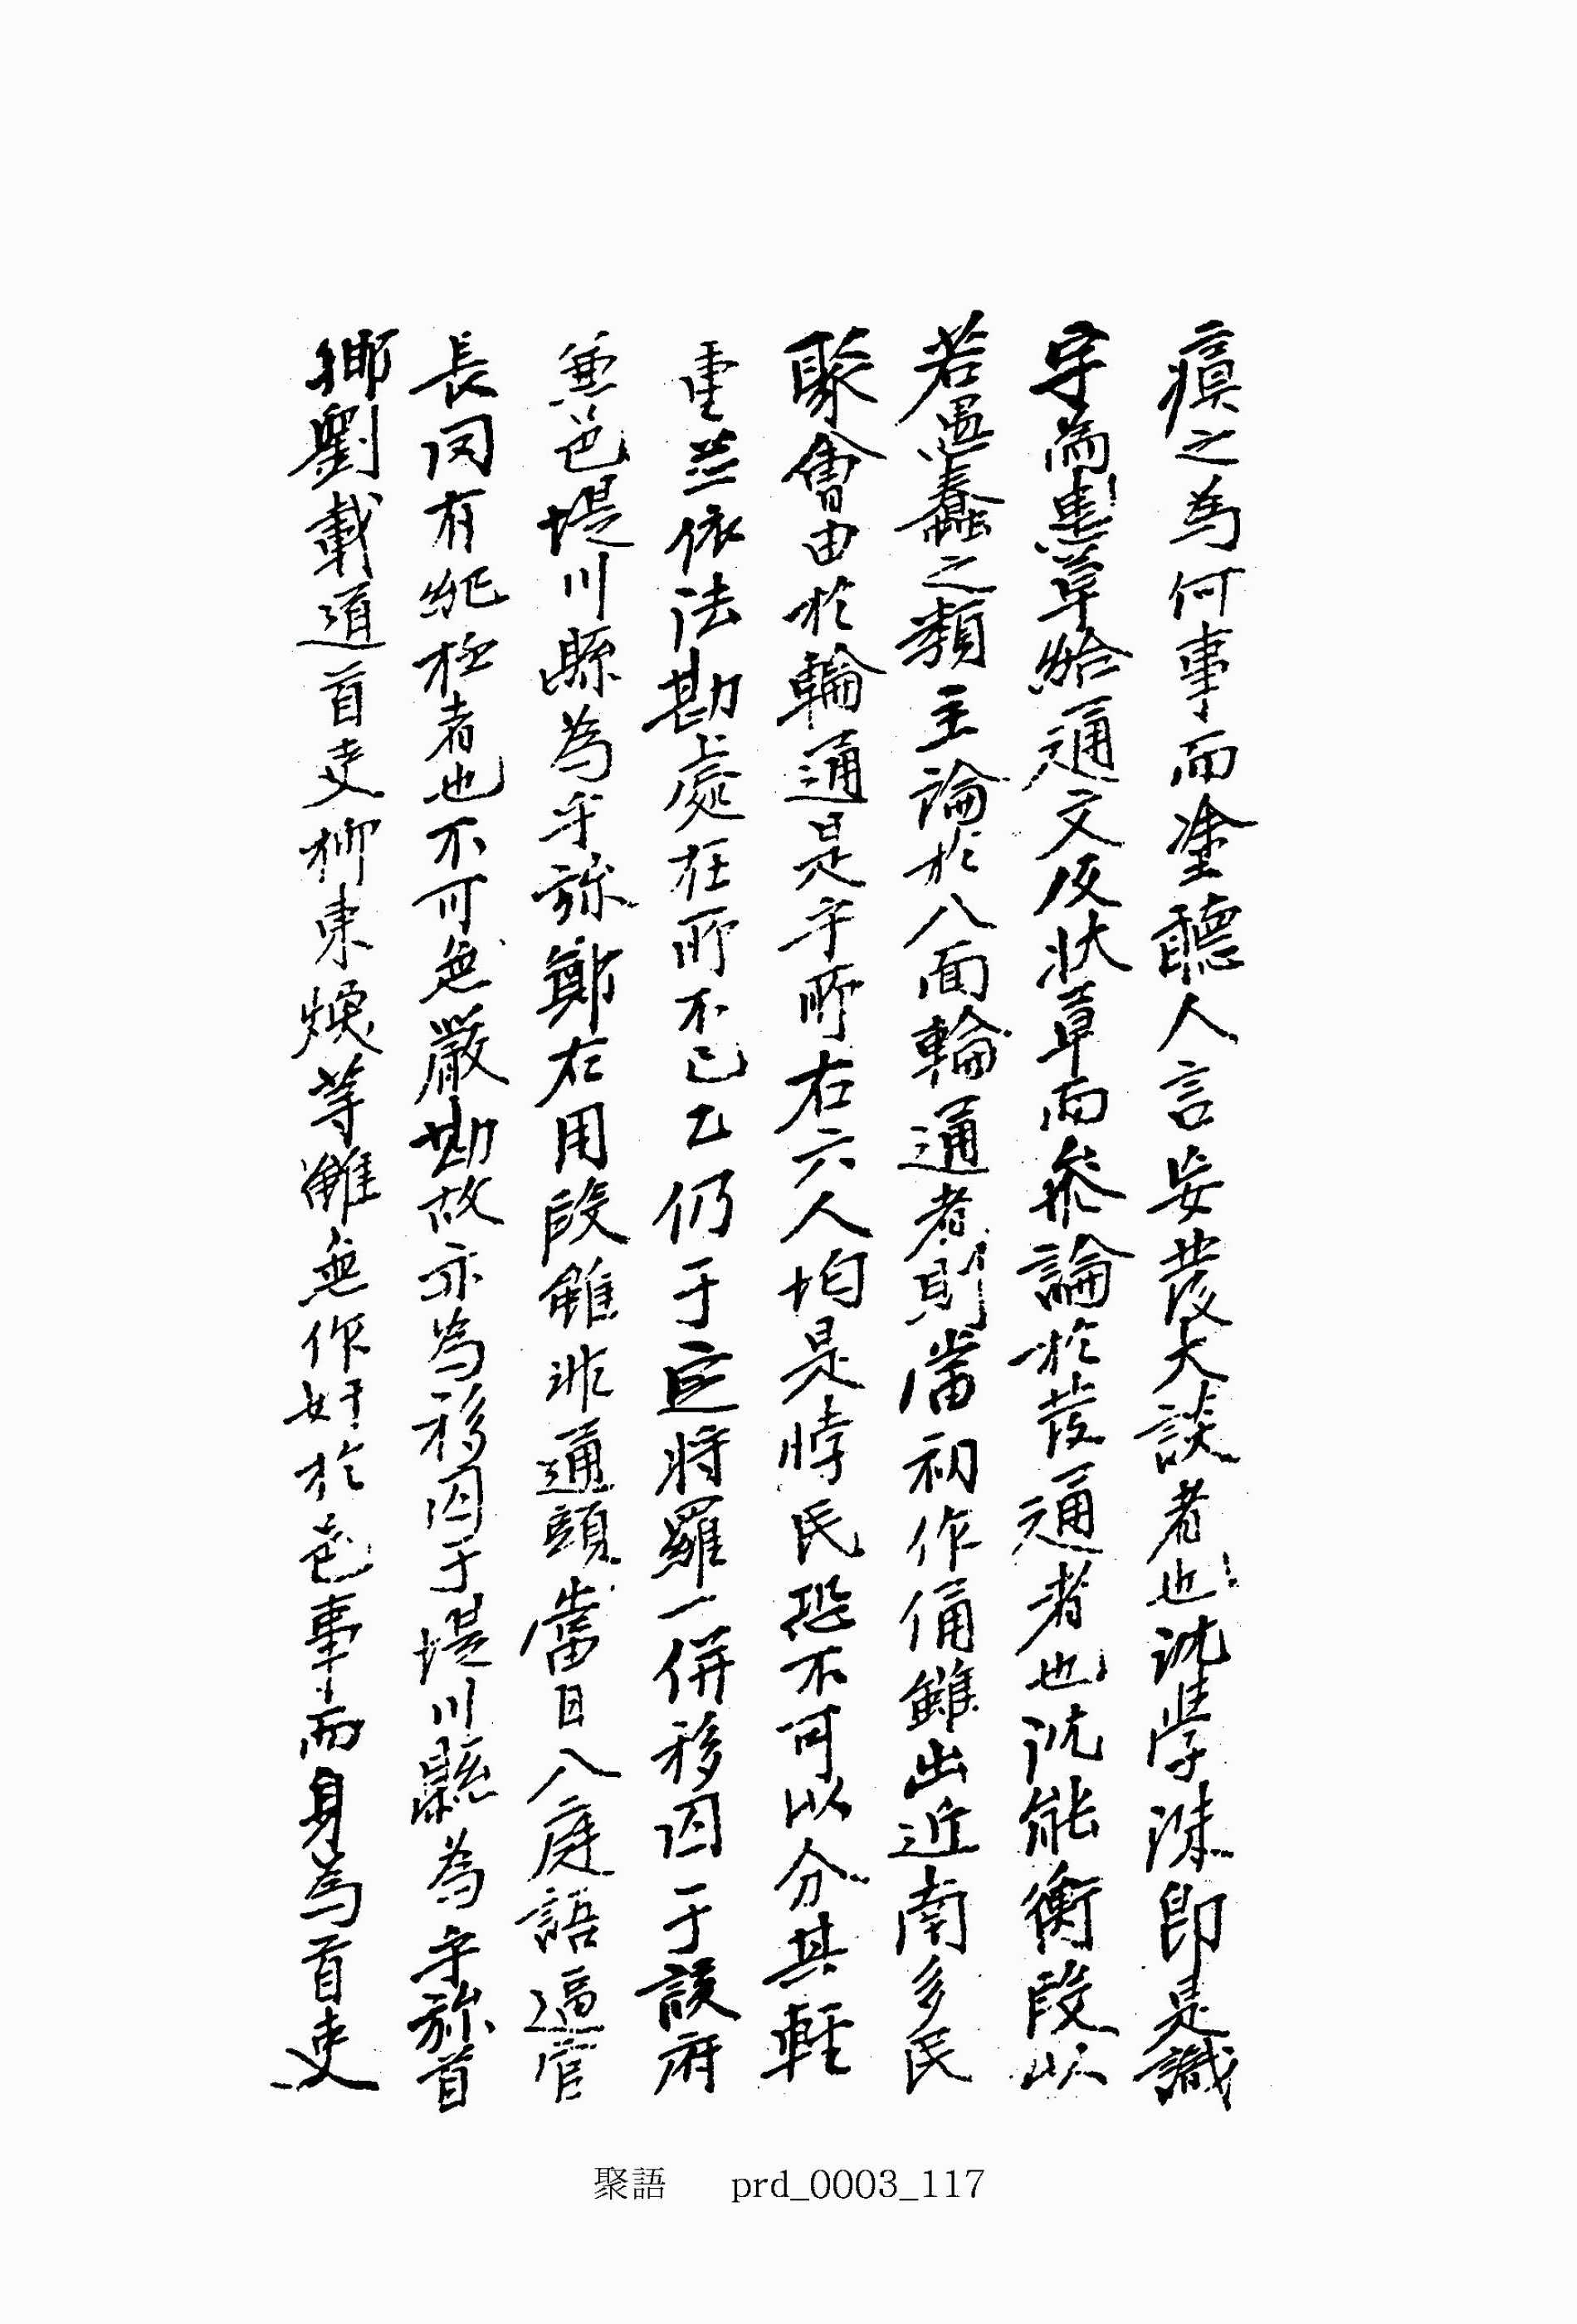 瘼之為何事而塗聽人言妄發大談者也沈學洙卽是識
字為患草給通文及狀草而參論於發通者也沈能衡段以
若愚蠢之類主論於八面輪通者則當初作俑雖出近南多民
聚會由於輪通是乎所右六人均是悖民恐不可以分其輕
重並依法勘處在所不已乙仍于 將羅一倂移囚于該府
兼邑堤川縣為乎旀鄭在用段雖非通頭當日入庭語逼官
長罔有紀極者也不可無嚴勘故亦為移囚于堤川縣為乎旀首
鄕劉載道首吏柳東煥等雖無作奸於邑事而身為首吏
聚語 prd_0003_117